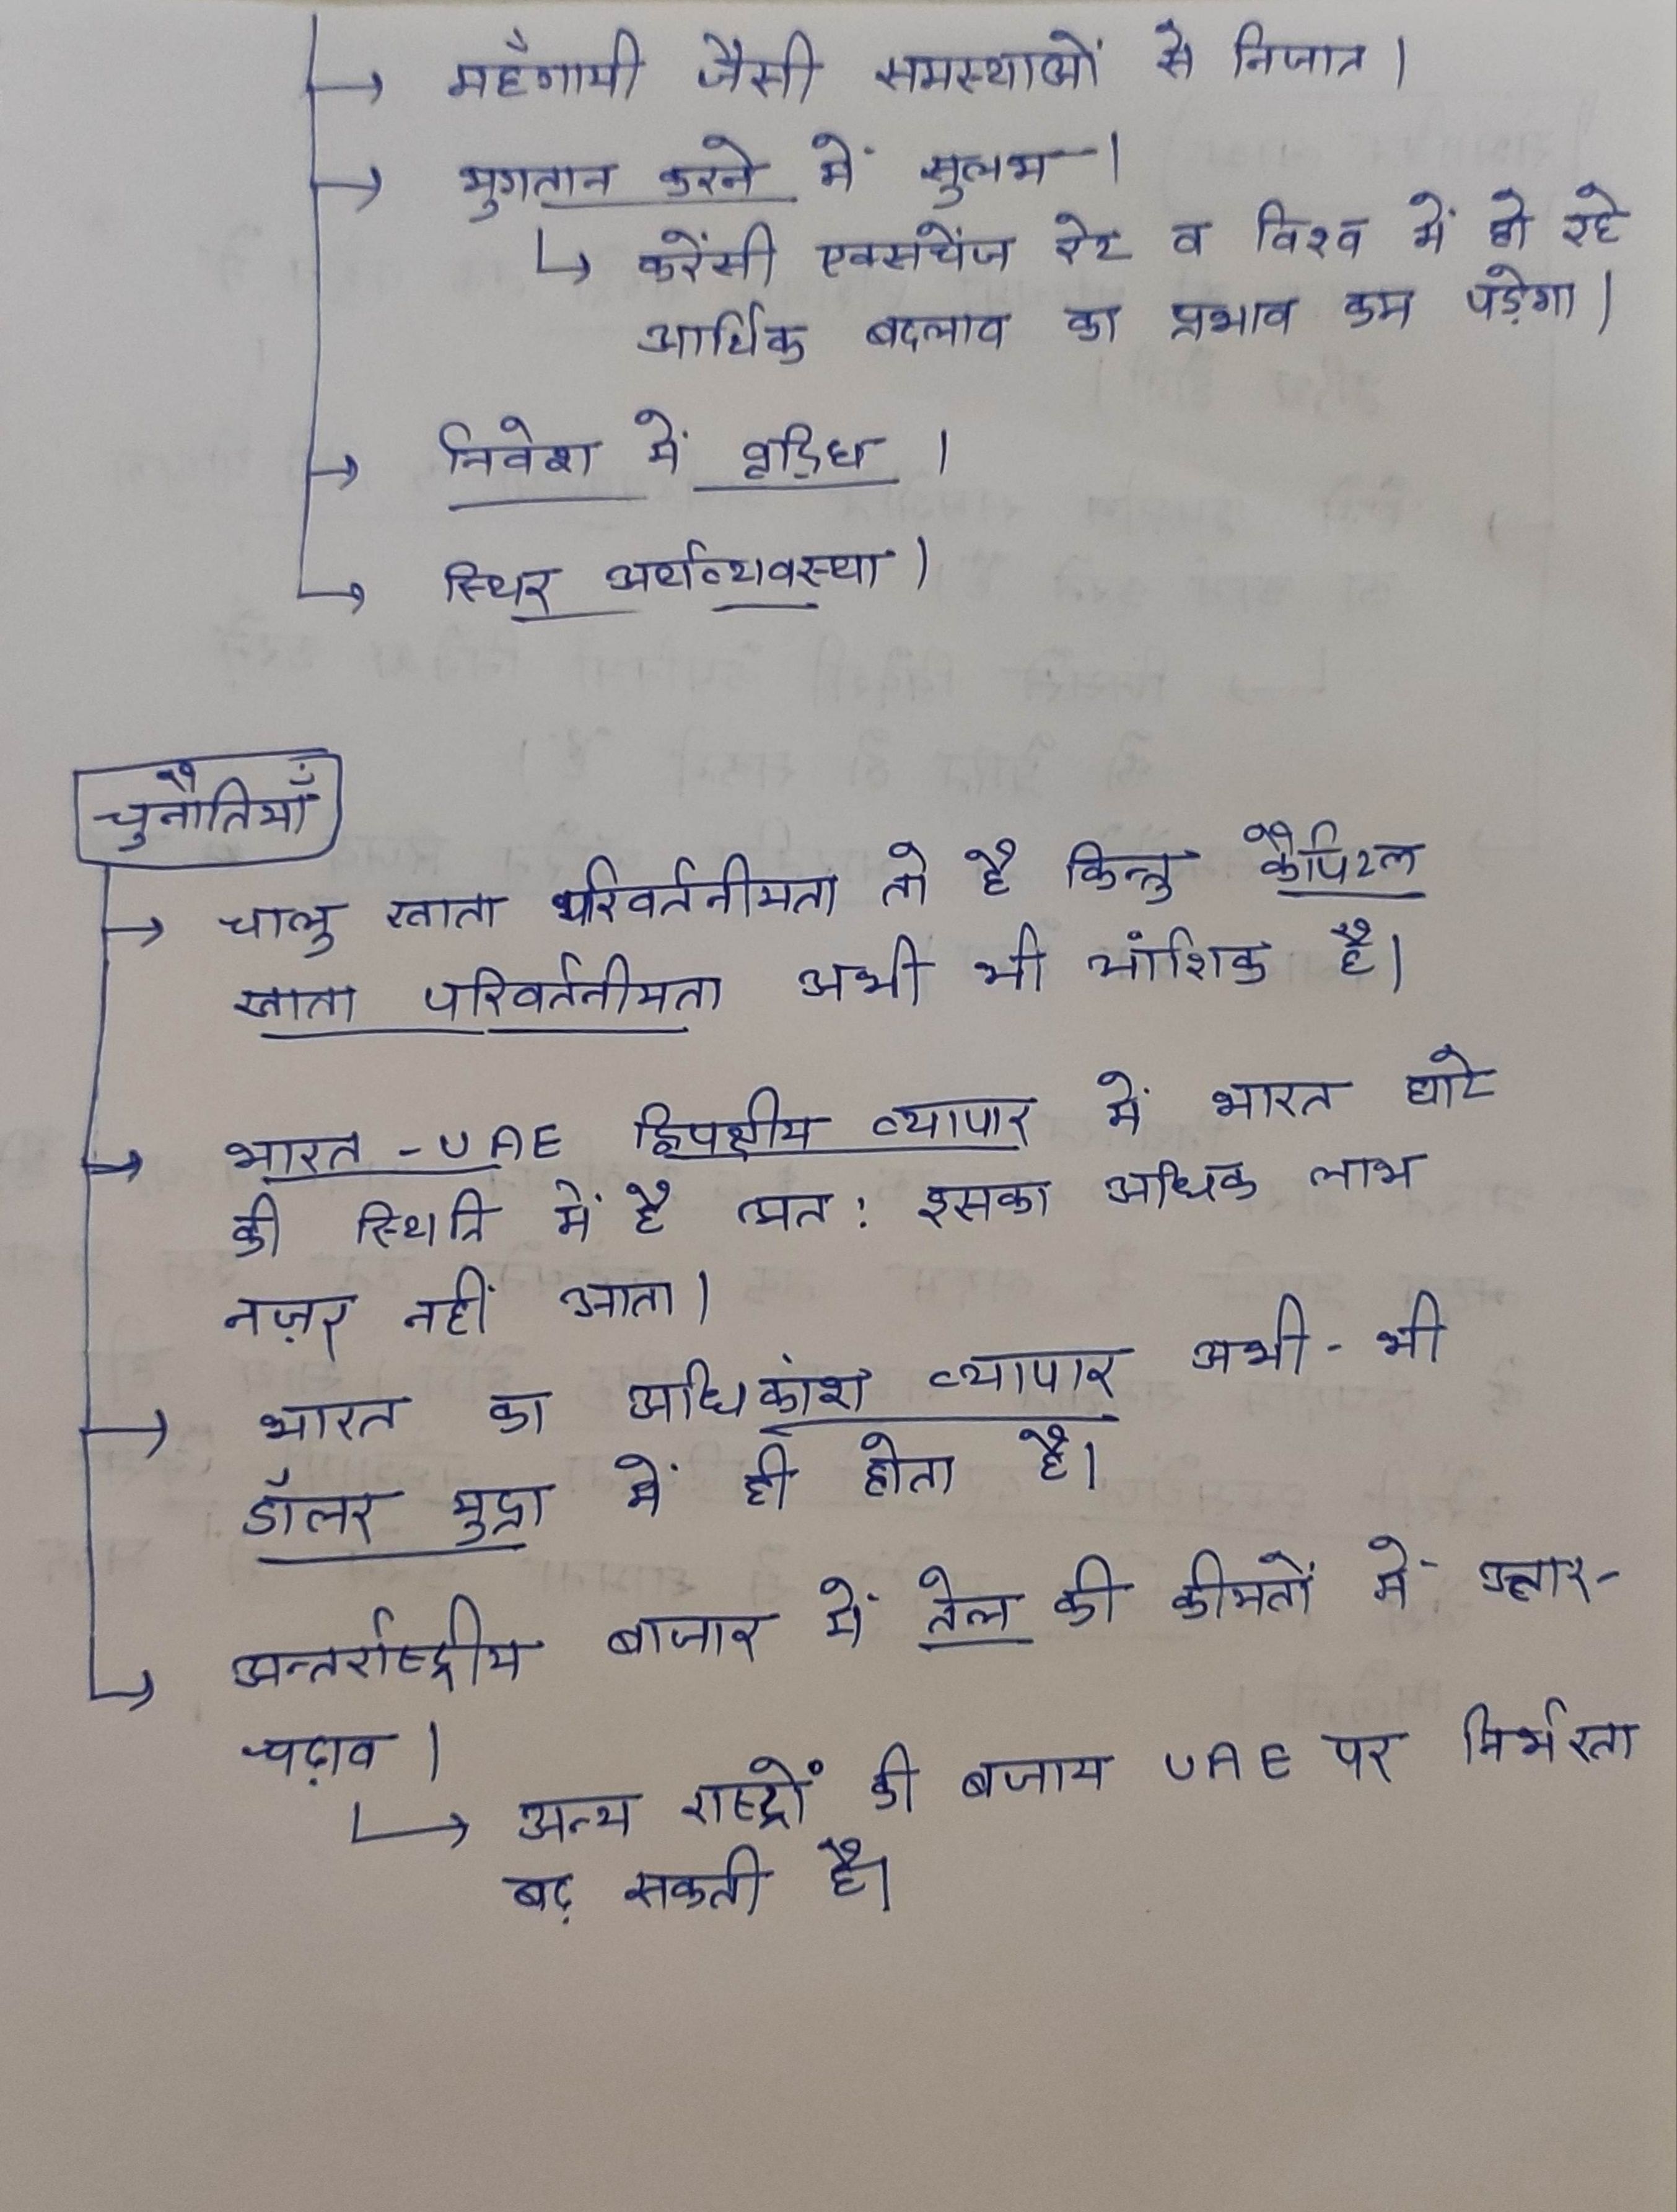 → महँगायी जैसी समस्याओं से निजात।
→ भुगतान करने में सुलभ।
↳ करेंसी एक्सचेंज रेट व विश्व में हो रहे
आर्थिक बदलाव का प्रभाव कम पड़ेगा।
→ निवेश में वृद्धि।
→ स्थिर अर्थव्यवस्था।
चुनौतियाँ
→ चालु खाता परिवर्तनीयता तो है किन्तु कैपिटल
खाता परिवर्तनीयता अभी भी आंशिक है।
→ भारत - UAE द्विपक्षीय व्यापार में भारत घाटे
की स्थिति में है अत: इसका अधिक लाभ
नज़र नहीं आता।
→ भारत का अधिकांश व्यापार अभी - भी
डॉलर मुद्रा में ही होता है।
→ अन्तर्राष्ट्रीय बाजार में तेल की कीमतों में उतार-
चढ़ाव।
↳ अन्य राष्ट्रों की बजाय UAE पर निर्भरता
बढ़ सकती है।